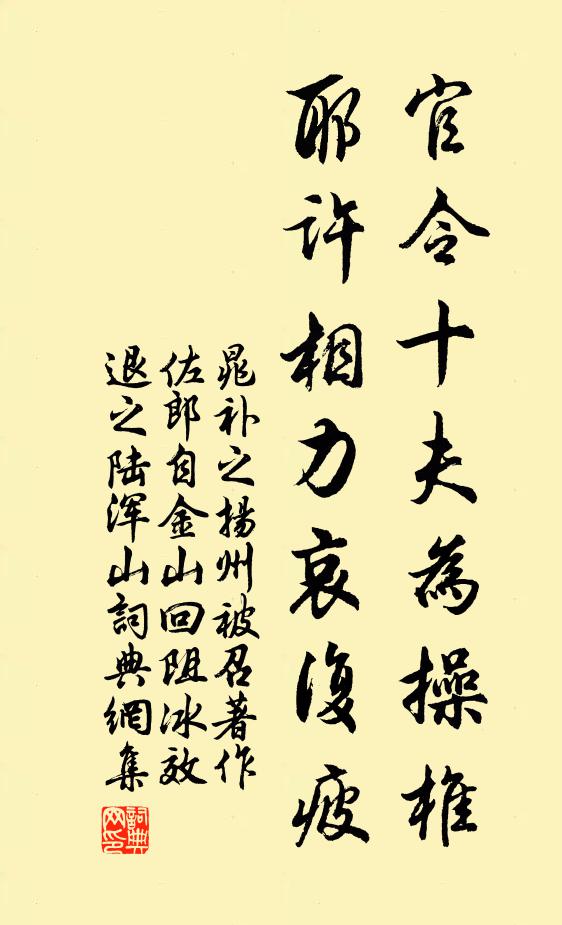 官令十夫為操椎
耶許相力哀復疲
晁补之揚州被召著作
佐郎自金山回阻冰效
退之陆浑山詞典網集
詞典
网印